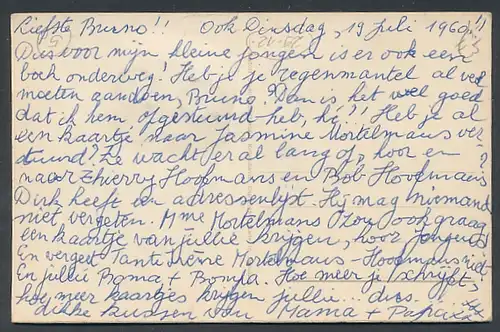 Liefste Bruno!! Ook Dinsdag, 19 Juli 1960!!
Dus voor mijn kleine jongen is er ook een
boek onderweg! Heb je je regenmantel al ver
moeten aandoen, Bruno? Dan is het wel goed
dat ik hem opgestuurd heb, hé!! Heb je al
een kaartje naar Jasmine Mortelmans ver-
stuurd? Ze wacht er al lang op, hoor en
naar Thierry Hoofmans en Bob Hoofmans?
Dirk heeft een adressenlijst. Hij mag niemand
niet vergeten. Mme Mortelmans zou ook graag
een kaartje van jullie krijgen, hoor jongens
En vergeet Tante Reine Mortelmans-Hoofmans niet
En jullie Boma + Bompa. Hoe meer je schrijft,
hoe meer kaartjes krijgen jullie... dus.
dikke kussen van Mama + Papa xxx